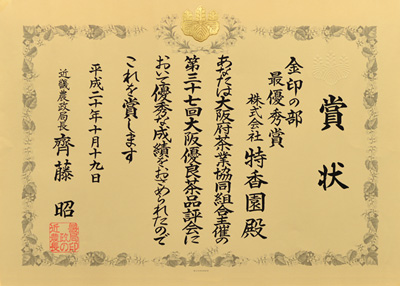 賞状
金印の部
最優秀賞
株式会社 特香園殿
あなたは大阪府茶業協同組合主催の
第三十七回大阪優良茶品評会に
おいて優秀な成績をおさめられたので
これを賞します
平成二十年十月十九日
近畿農政局長 齊藤 昭